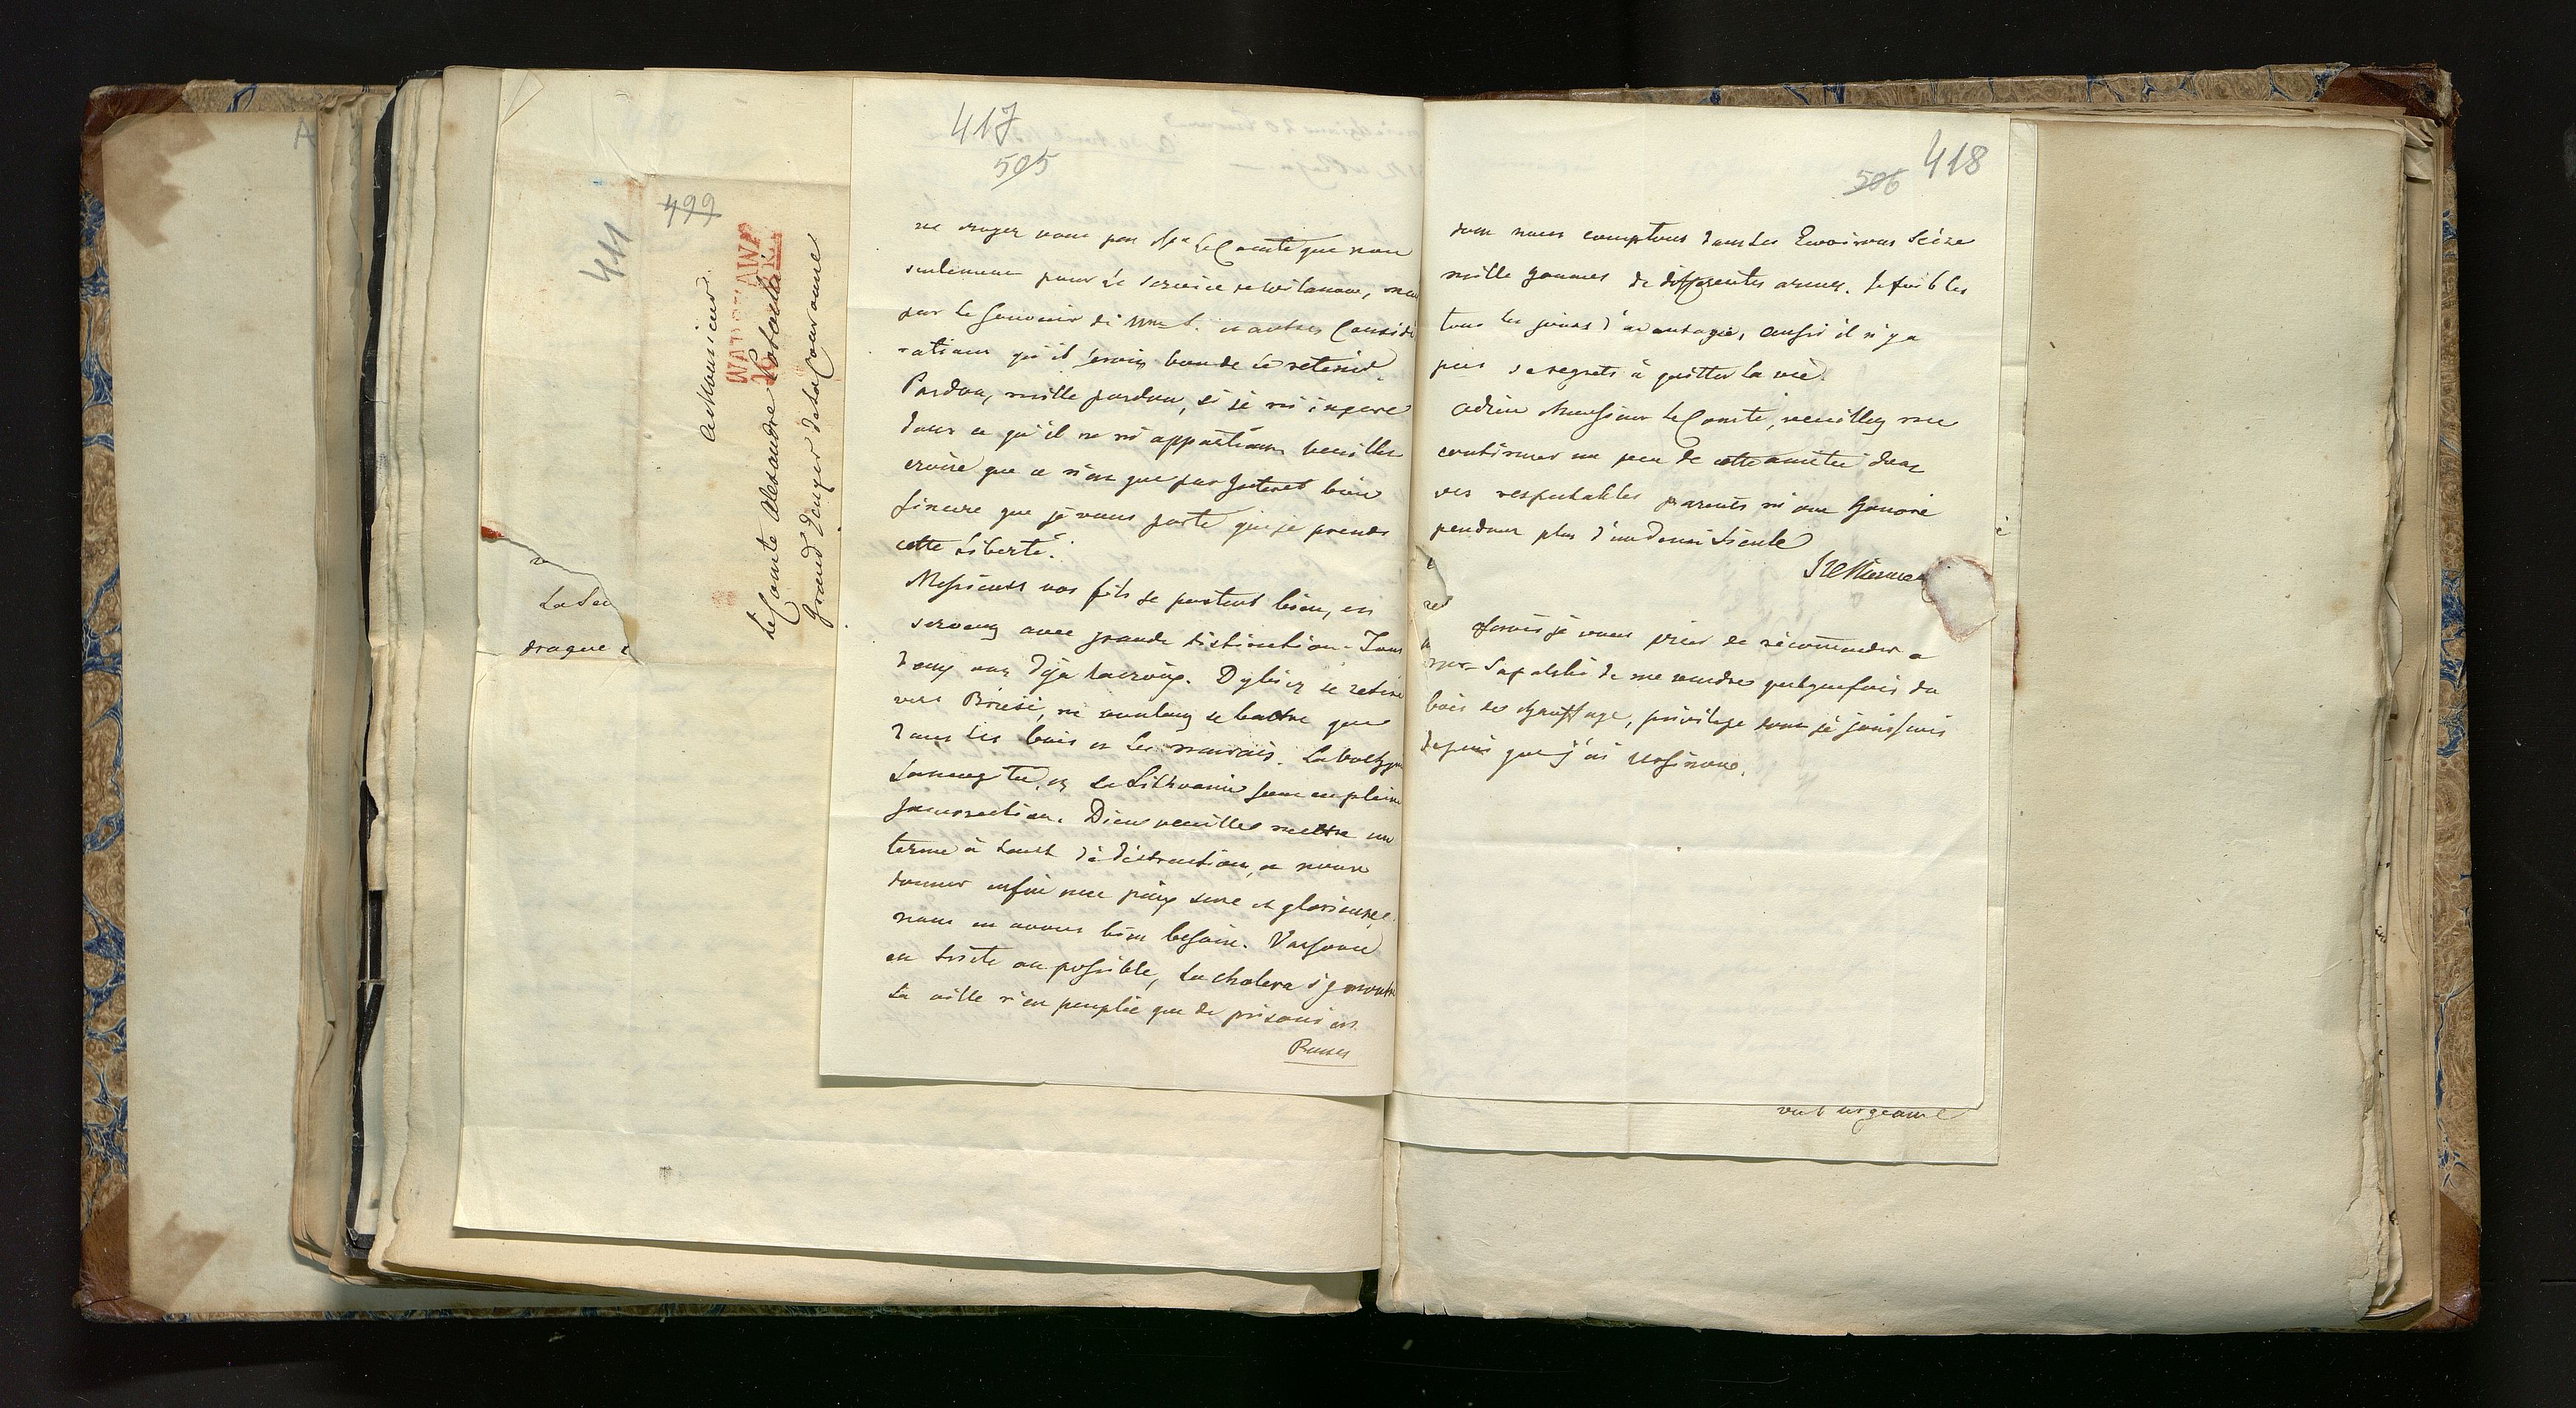 411
499
A Monsieur
WARSZAWA
Le Comte Alexandre Potocki
Grand Ecuyer de la Couronne
La Seu
417
505
ne croyez vous pas Mr Le Comte que non
seulement pour le service de Wilanow, mais
par le souvenir de Mme L. et autres Considé
-rations qu'il seroit bon de le retenir.
Pardon, mille pardon, si je m'ingere
dans ce qu'il ne m'appartient veuillez
croire que ce n'est que par Interet bien
sincere que je vous porte que je prends
cette Liberté.
Messieurs vos fils se portent bien, en
servant avec grande distinction. Tous
deux ont déja la croix. Dybicz se retire
vers Briesc, ne voulant se battre que
dans les bois et les marais. La Volhynie
Samogitie, et la Lithuanie sont en pleine
Insurrection. Dieu veuille mettre un
terme à tant de déstruction, et nous
donner enfin une paix sure et glorieuse.
nous en avons bien besoin. Varsovie
est triste au possible, la cholera s'y montre
La ville n'est peuplée que de prisoniers
Russes
506
418
dont nous comptons dans les Environs Séize
mille hommes de différentes armes. Je foiblis
tous les jours d'avantage, aussi il n'y a
pas de regrets à quitter la vie.
Adieu Monsieur le Comte, veuillez me
continuer un peu de cette amitié dont
vos respectables parents m'ont honoré
pendant plus d'un demi Siecle
oserois je vous prier de récommander a
Mr Sapalski de me vendre quelquefois du
bois de chauffage, privilege dont je jouissois
depuis que j'ai Ursinow.